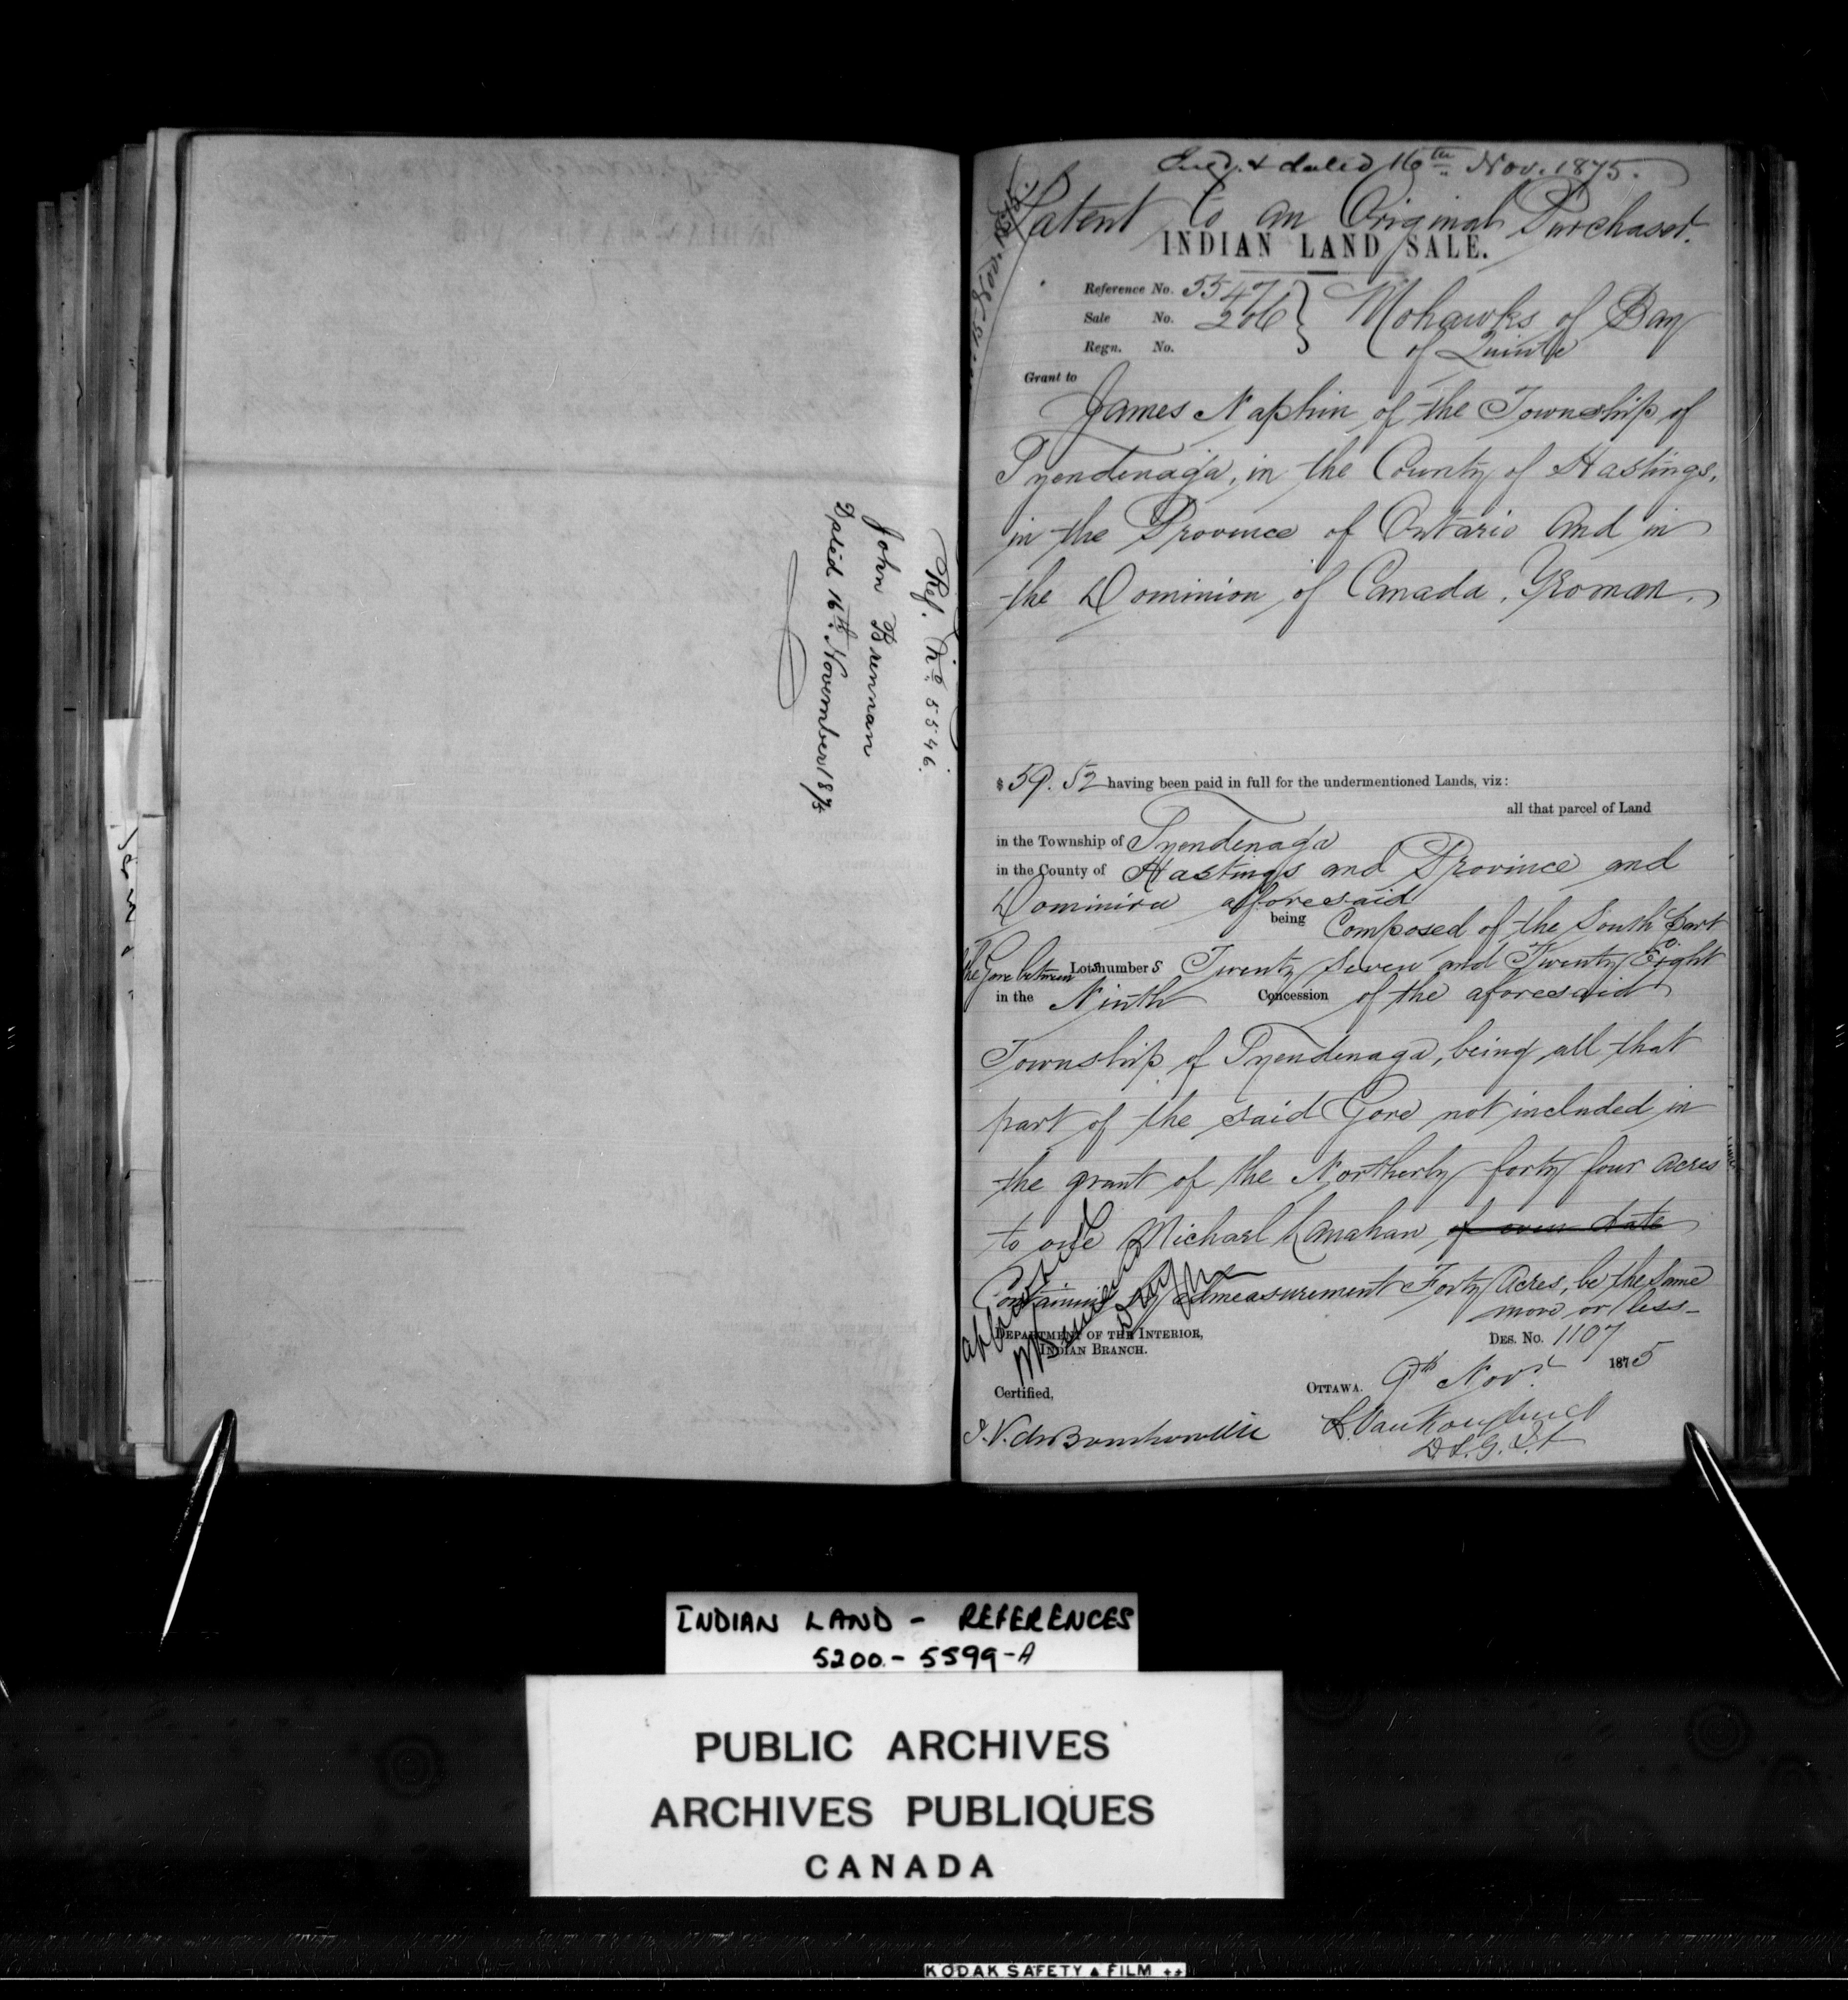 Ref. No. 5546.
John Brennan
Dated 16th November 1875
& dated 16th Nov. 1875.
Patent to an Original Purchaser.
INDIAN LAND SALE.
Reference No. 5547
Sale No. 206
Regn. No.
Mohawks of Bay
of Quinte
Grant to
James Naphin of the Township of
Tyendenaga, in the County of Hastings,
in the Province of Ontario and in
the Dominion of Canada, Yeoman.
$59.52 having been paid in full for the undermentioned Lands, viz:
all that parcel of Land
in the Township of Tyendenaga
in the County of Hastings and Province and
Dominion aforesaid
being Composed of the South Part
of the Gore between Lots numbers Twenty Seven and Twenty Eight
in the Ninth Concession of the aforesaid
Township of Tyendenaga, being all that
part of the said Gore not included in
the grant of the Northerly forty four acres
to one Michael Lanahan, of even date
Containing by admeasurement Forty Acres, be the same
more or less
approved
DEPARTMENT OF THE INTERIOR,
INDIAN BRANCH.
DES. No. 1107
OTTAWA. 9th Novr. 1875
Certified,
L. Vankoughnet
D.S.G.I.A
INDIAN LAND - REFERENCES
5200 - 5599-A
PUBLIC ARCHIVES
ARCHIVES PUBLIQUES
CANADA
KODAK SAFETY FILM